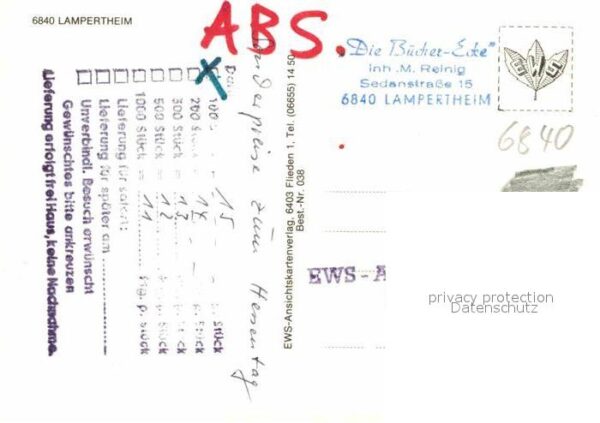 6840 LAMPERTHEIM
ABS.
"Die Bücher-Ecke"
Inh. M. Reinig
Sedanstraße 15
6840 LAMPERTHEIM
EWS
6840
Sonderpreise zum Hessentag
100 Stück = 15 Stück
200 Stück = 14 p. Stück
300 Stück = 13 p. Stück
500 Stück = 12 p. Stück
1000 Stück = 11 p. Stück
Lieferung für sofort:
Lieferung für später am
Unverbindl. Besuch erwünscht
Gewünschtes bitte ankreuzen
Lieferung erfolgt frei Haus, keine Nachnahme.
EWS-Ansichtskartenverlag, 6403 Flieden 1, Tel. (06655) 14 50
Best.-Nr. 038
EWS-A
privacy protection
Datenschutz